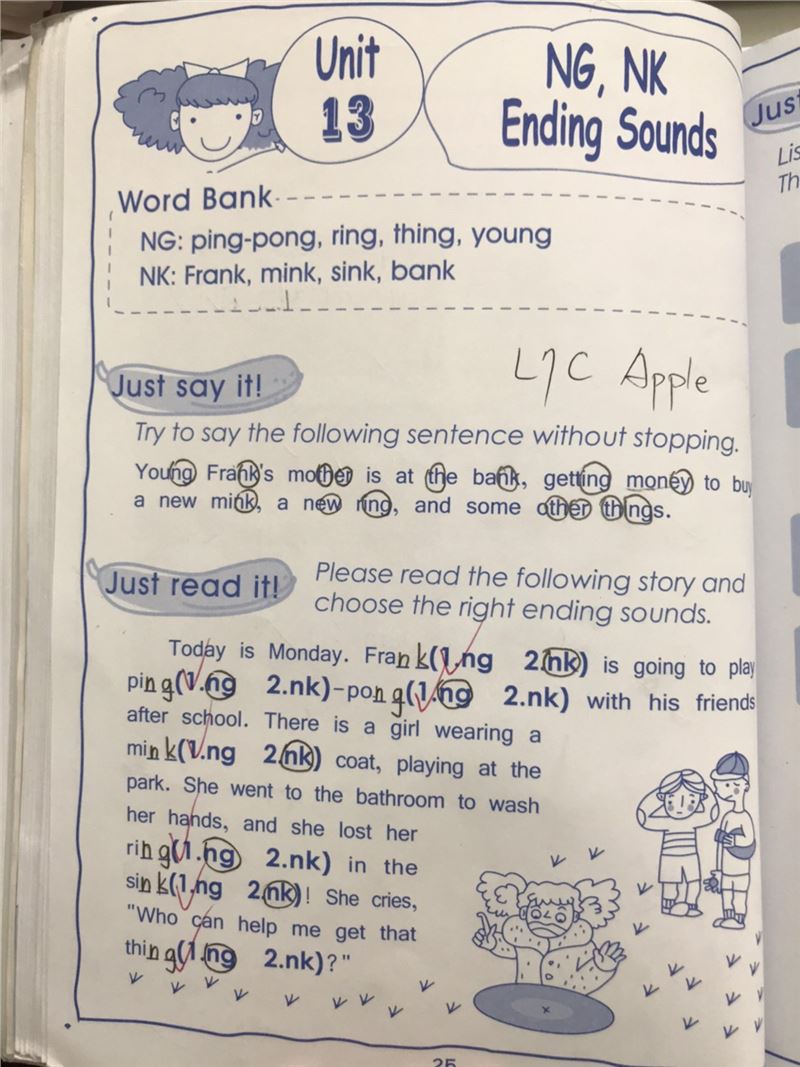 Unit
13
NG, NK
Ending Sounds
Word Bank
NG: ping-pong, ring, thing, young
NK: Frank, mink, sink, bank
Just say it!
LJC Apple
Try to say the following sentence without stopping.
Young Frank's mother is at the bank, getting money to buy
a new mink, a new ring, and some other things.
Just read it!
Please read the following story and
choose the right ending sounds.
Today is Monday. Frank(1.ng 2.nk) is going to play
ping(1.ng 2.nk)-pong(1.ng 2.nk) with his friends
after school. There is a girl wearing a
mink(1.ng 2.nk) coat, playing at the
park. She went to the bathroom to wash
her hands, and she lost her
ring(1.ng 2.nk) in the
sink(1.ng 2.nk)! She cries,
"Who can help me get that
thing(1.ng 2.nk)?"
25
Just
Lis
Th